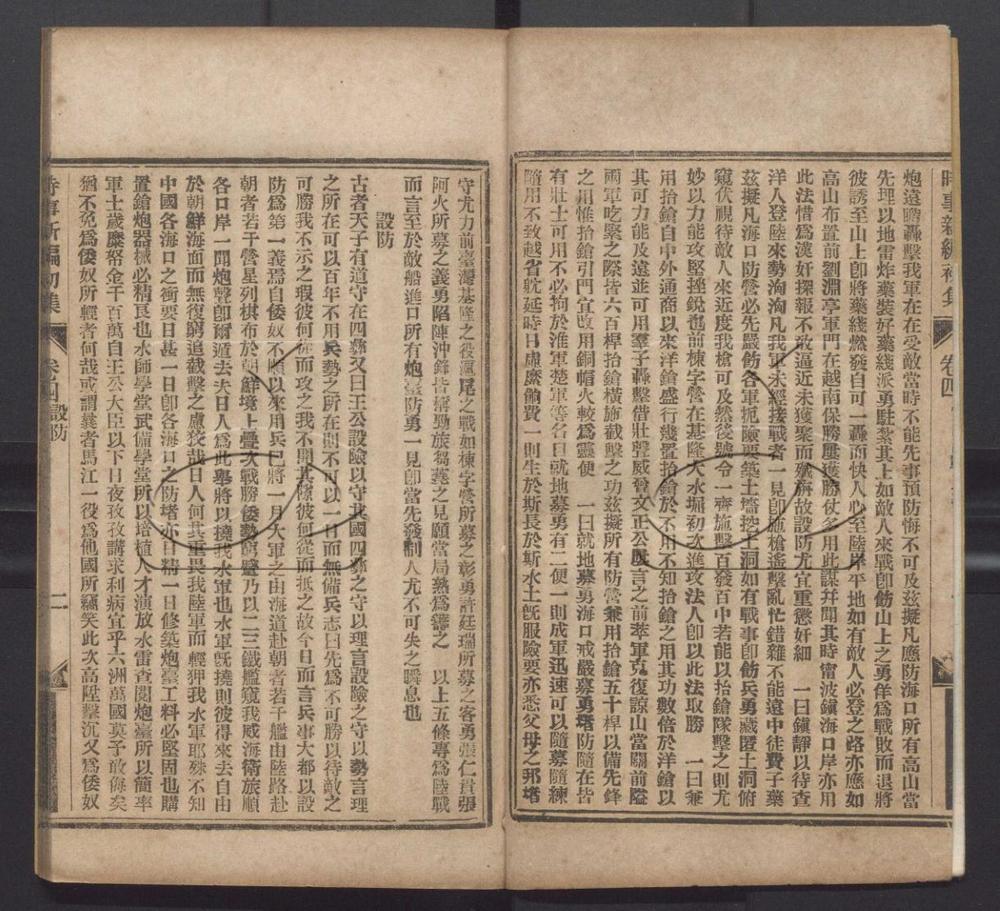 時事新編初集 卷四
炮遠瞻轟擊我軍在在受敵當時不能先事預防悔不可及茲擬凡應防海口所有高山當
先埋以地雷炸藥裝好藥綫派勇駐紮其上如敵人來戰卽飭山上之勇佯爲戰敗而退將
彼誘至山上卽將藥綫燃發自可一轟而快人必至陸岸平地如有敵人必登之路亦應如
高山布置前劉淵亭軍門在越南保勝屢獲勝仗多用此謀幷聞其時甯波鎮海口岸亦用
此法惜爲漢奸探報不敢逼近未獲聚而殲旃故設防尤宜重懲奸細 一曰鎮靜以待查
洋人登陸來勢洶洶凡我軍未經接戰者一見卽施槍遙擊亂忙錯雜不能遠中徒費子藥
茲擬凡海口防營必先嚴飭各軍扼險要築土墻挖土洞如有戰事卽飭兵勇藏匿土洞俯
窺伏視待敵人來近度我槍可及然後號令一齊施擊百發百中若能以抬鎗隊擊之則尤
妙以力能攻堅挫銳也前棟字營在基隆大水堀初次進攻法人卽以此法取勝 一曰兼
用抬鎗自中外通商以來洋鎗盛行幾置抬鎗於不用不知抬鎗之用其功數倍於洋鎗以
其可力能及遠並可用羣子轟擊借壯聲威曾文正公嘗言之前萃軍克復諒山當關前隘
兩軍吃緊之際皆六百桿抬鎗橫施截擊之功茲擬所有防營兼用抬鎗五十桿以備先鋒
之用惟抬鎗引門宜改用銅帽火較爲靈便 一曰就地募勇海口戒嚴募勇堵防隨在皆
有壯士可用不必拘於淮軍楚軍等名目就地募勇有二便一則成軍迅速可以隨募隨練
隨用不致越省躭延時日虛縻餉費一則生於斯長於斯水土旣服險要亦悉父母之邦堵
守尤力前臺灣基隆之役滬尾之戰如棟字營所募之彰勇許廷瑞所募之客勇張仁貴張
阿火所募之義勇陷陣沖鋒皆稱勁旅芻蕘之見願當局熟爲籌之 以上五條專爲陸戰
而言至於敵船進口所有炮臺防勇一見卽當先發制人尤不可失之瞬息也
設防
古者天子有道守在四彝又曰王公設險以守其國四彝之守以理言設險之守以勢言理
之所在可以百年不用兵勢之所在則不可以一日而無備兵志曰先爲不可勝以待敵之
可勝我不示之瑕彼何從而攻之我不開其隙彼何從而抵之故今日而言兵事大都以設
防爲第一義焉自倭奴不順以來用兵已將一月大軍之由海道赴朝者若干艦由陸路赴
朝者若干營星列棋布於朝鮮境上疊次戰勝倭勢窮蹙乃以二三鐵艦窺我威海衛旅順
各口岸一聞炮聲卽爾遁去夫日人爲此舉將以撓我水軍也水軍旣撓則彼得來去自由
於朝鮮海面而無復窮追截擊之慮狡哉日人何其重畏我陸軍而輕狎我水軍耶殊不知
中國各海口之衝要日甚一日卽各海口之防堵亦日精一日修築炮臺工料必堅固也購
置鎗炮器械必精良也水師學堂武備學堂所以培植人才演放水雷查閱炮臺所以簡率
軍士歲縻帑金千百萬自王公大臣以下日夜孜孜講求利病宜乎六洲萬國莫予敢侮矣
猶不免爲倭奴所輕者何哉或謂曩者馬江一役爲他國所竊笑此次高陞擊沉又爲倭奴
時事新編初集 卷四設防 二